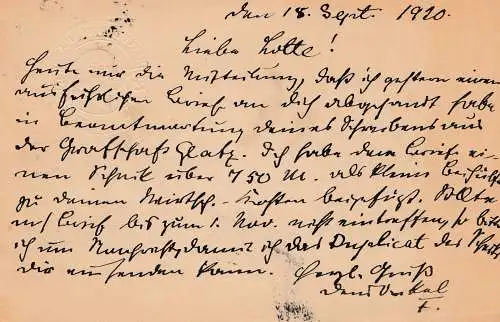 den 18. Sept. 1920.
Liebe Lotte!
Heute nur die Mitteilung, daß ich gestern einen
ausführlichen Brief an dich abgesandt habe
in Beantwortung deines Schreibens aus
der Grafschaft Glatz. Ich habe dem Brief ei-
nen Scheck über 750 M. als kleine Beihülfe
zu deinen Wirtsch.-Kosten beigefügt. Sollte
m/ Brief bis zum 1. Nov. nicht eintreffen, so bitte
ich um Nachricht, damit ich das Duplicat des Schecks
dir einsenden kann. Herzl. Gruß
dein Onkel